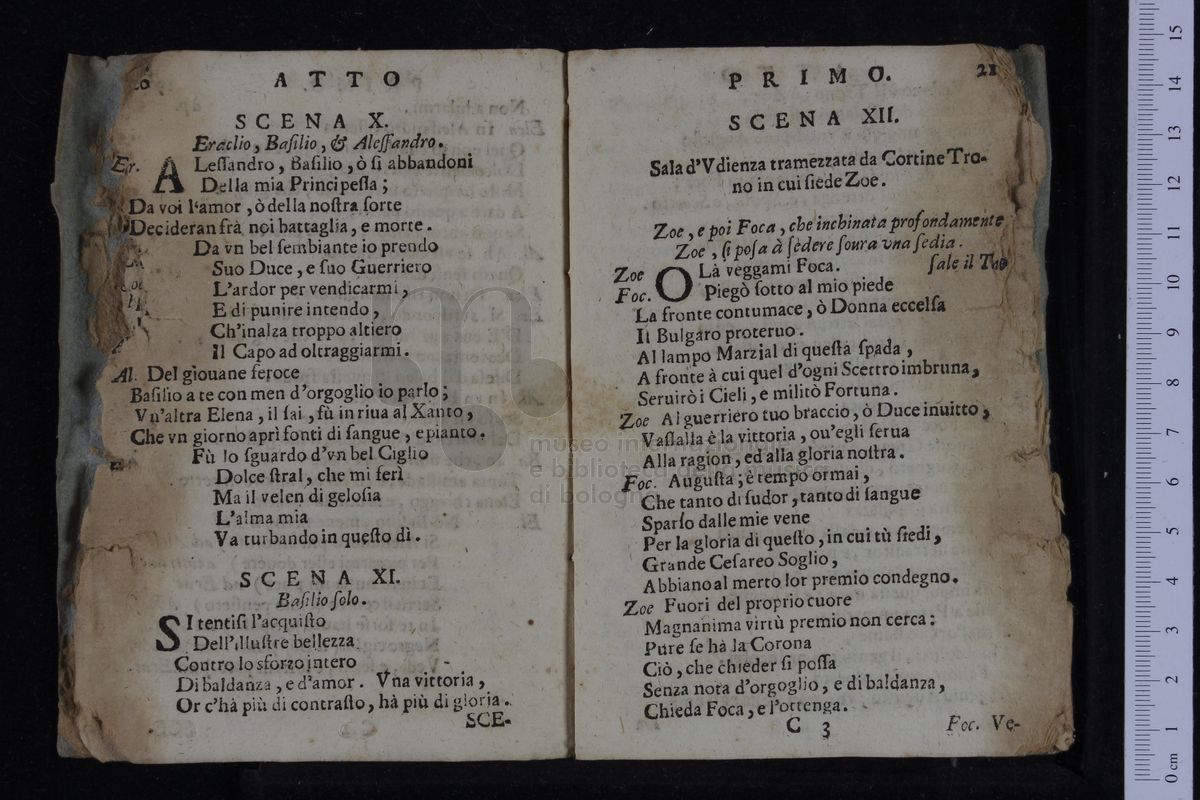 ATTO
SCENA X.
Eraclio, Basilio, & Alessandro.
Er. ALessandro, Basilio, ò si abbandoni
Della mia Principessa;
Da voi l'amor, ò della nostra sorte
Decideran frà noi battaglia, e morte.
Da vn bel sembiante io prendo
Suo Duce, e suo Guerriero
L'ardor per vendicarmi,
E di punire intendo,
Ch'inalza troppo altiero
Il Capo ad oltraggiarmi.
Al. Del giouane feroce
Basilio a te con men d'orgoglio io parlo;
Vn'altra Elena, il sai, fù in riua al Xanto,
Che vn giorno aprì fonti di sangue, e pianto.
Fù lo sguardo d'vn bel Ciglio
Dolce stral, che mi ferì
Ma il velen di gelosia
L'alma mia
Va turbando in questo dì.
SCENA XI.
Basilio solo.
SI tentisi l'acquisto
Dell'illustre bellezza
Contro lo sforzo intero
Di baldanza, e d'amor. Vna vittoria,
Or c'hà più di contrasto, hà più di gloria.
SCE-
PRIMO. 21
SCENA XII.
Sala d'Vdienza tramezzata da Cortine Tro-
no in cui siede Zoe.
Zoe, e poi Foca, che inchinata profondamente
Zoe, si posa à sedere soura vna sedia.
Zoe OLà veggami Foca. sale il Tro
Foc. Piegò sotto al mio piede
La fronte contumace, ò Donna eccelsa
Il Bulgaro proteruo.
Al lampo Marzial di questa spada,
A fronte à cui quel d'ogni Scettro imbruna,
Seruirò i Cieli, e militò Fortuna.
Zoe Al guerriero tuo braccio, ò Duce inuitto,
Vassalla è la vittoria, ou'egli serua
Alla ragion, ed alla gloria nostra.
Foc. Augusta; è tempo ormai,
Che tanto di sudor, tanto di sangue
Sparso dalle mie vene
Per la gloria di questo, in cui tù siedi,
Grande Cesareo Soglio,
Abbiano al merto lor premio condegno.
Zoe Fuori del proprio cuore
Magnanima virtù premio non cerca:
Pure se hà la Corona
Ciò, che chieder si possa
Senza nota d'orgoglio, e di baldanza,
Chieda Foca, e l'ottenga.
C 3 Foc. Ve-
museo internazionale
e biblioteca della musica
di bologna
0 cm 1 2 3 4 5 6 7 8 9 10 11 12 13 14 15